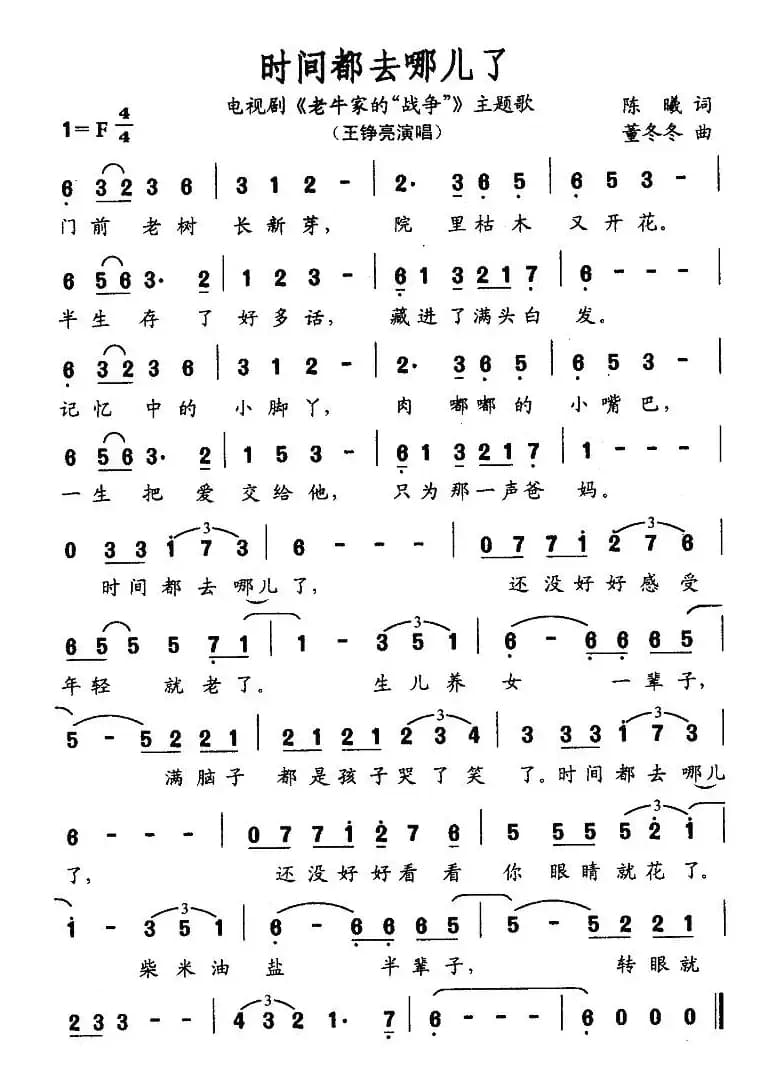 时间都去哪儿了
电视剧《老牛家的“战争”》主题歌 陈曦 词
1=F 4/4 （王铮亮演唱） 董冬冬 曲
6 3 2 3 6 | 3 1 2 - | 2· 3 6 5 | 6 5 3 - |
门前老树长新芽，院里枯木又开花。
6 5 6 3· 2 | 1 2 3 - | 6 1 3 2 1 7 | 6 - - - |
半生存了好多话，藏进了满头白发。
6 3 2 3 6 | 3 1 2 - | 2· 3 6 5 | 6 5 3 - |
记忆中的小脚丫，肉嘟嘟的小嘴巴，
6 5 6 3· 2 | 1 5 3 - | 6 1 3 2 1 7 | 1 - - - |
一生把爱交给他，只为那一声爸妈。
0 3 3 1 7 3 | 6 - - - | 0 7 7 1 2 7 6 |
时间都去哪儿了，还没好好感受
6 5 5 5 7 1 | 1 - 3 5 1 | 6 - 6 6 6 5 |
年轻就老了。生儿养女一辈子，
5 - 5 2 2 1 | 2 1 2 1 2 3 4 | 3 3 3 1 7 3 |
满脑子都是孩子哭了笑了。时间都去哪儿
6 - - - | 0 7 7 1 2 7 6 | 5 5 5 5 2 1 |
了，还没好好看看你眼睛就花了。
1 - 3 5 1 | 6 - 6 6 6 5 | 5 - 5 2 2 1 |
柴米油盐半辈子，转眼就
2 3 3 - - | 4 3 2 1· 7 | 6 - - - | 6 0 0 0 |